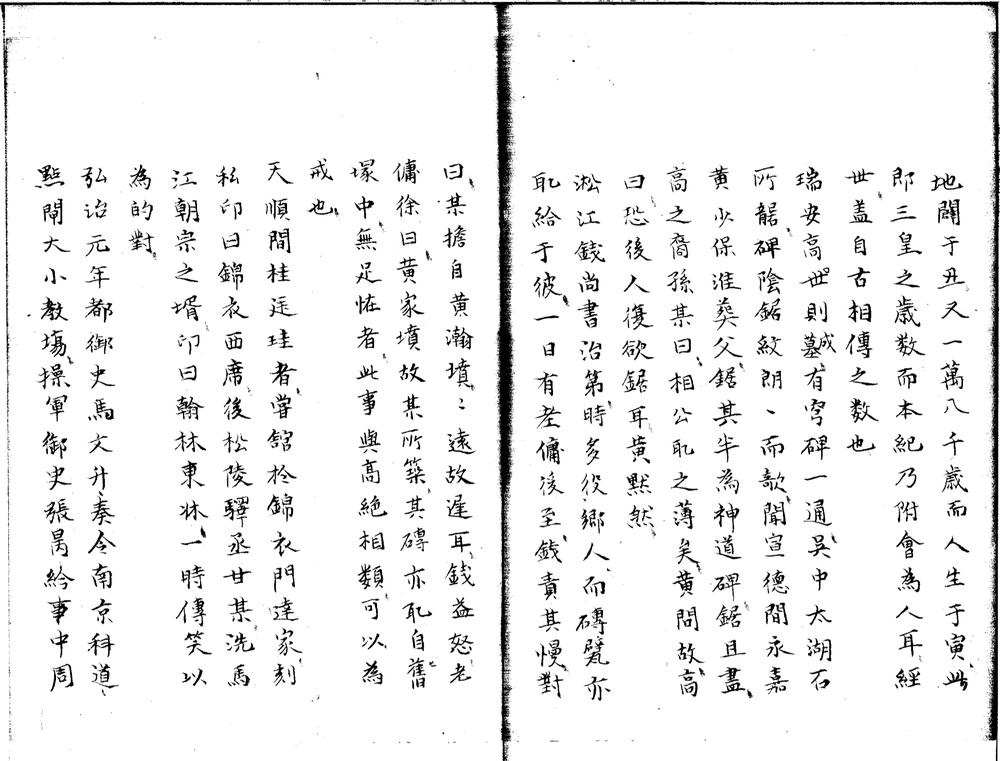 地闢于丑又一萬八千歲而人生于寅此
即三皇之歲数而本紀乃附會為人耳經
世盖自古相傳之数也
瑞安高世則墓成有穹碑一通吳中太湖石
所龍碑陰鋸紋朗、而歆聞宣德間永嘉
黄少保淮葬父鋸其半為神道碑鋸且盡
高之裔孫某曰相公取之薄矣黄問故高
曰恐後人復欲鋸耳黄默然
淞江錢尚書治第時多役鄉人而磚甓亦
取給于彼一日有老傭後至錢責其慢對
曰某擔自黄瀚墳〻遠故遲耳錢益怒老
傭徐曰黄家墳故某所築其磚亦取自舊
塚中無足恠者此事與高絶相類可以為
戒也
天順間桂廷珪者嘗舘扵錦衣門達家刻
私印曰錦衣西席後松陵驛丞甘某洗馬
江朝宗之壻印曰翰林東牀一時傳笑以
為的對
弘治元年都御史馬文升奏令南京科道
點閘大小教塲操軍御史張昺給事中周